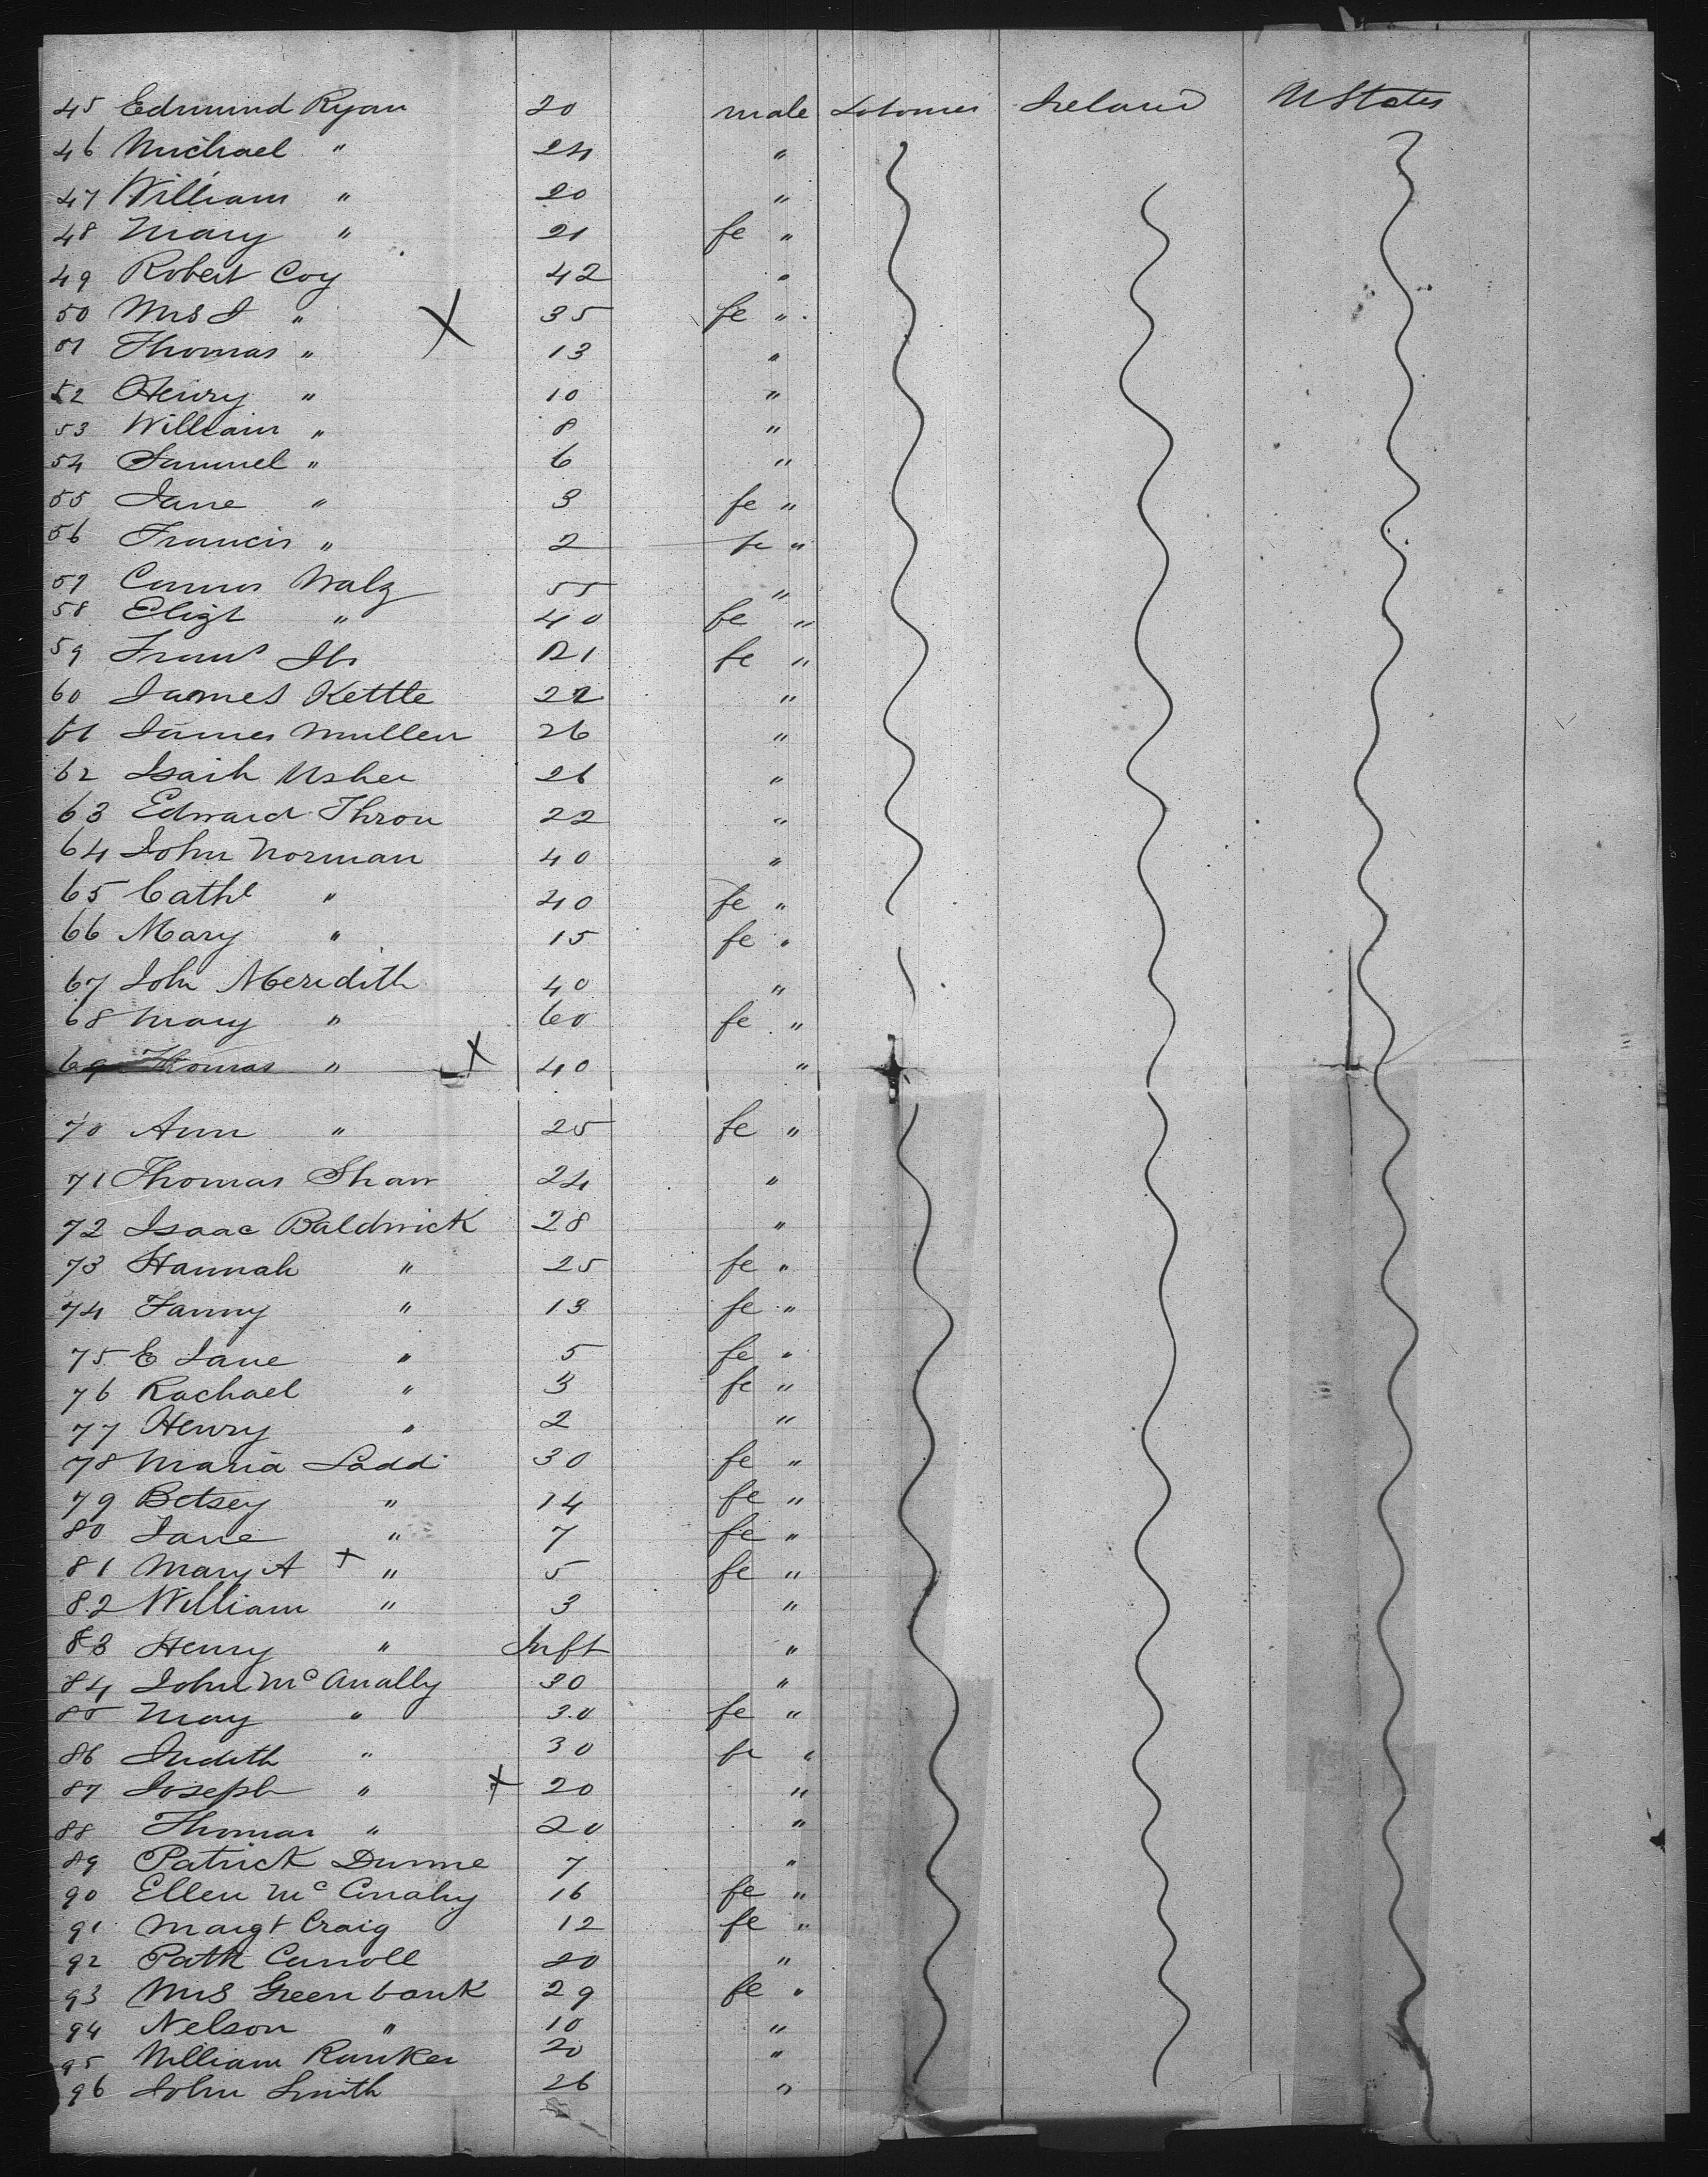 45 Edmund Ryan 20 male Labourer Ireland U States
46 Michael " 24 "
47 William " 20 "
48 Mary " 21 fe "
49 Robert Coy 42 "
50 Mrs J " X 35 fe "
51 Thomas " 13 "
52 Henry " 10 "
53 William " 8 "
54 Samuel " 6 "
55 Jane " 3 fe "
56 Francis " 2 fe "
57 55 "
58 Elizt " 40 fe "
59 21 fe "
60 James Kettle 22 "
61 James Mullen 26 "
62 Isaih Usher 26 "
63 Edward Thron 22 "
64 John Norman 40 "
65 Cathe " 40 fe "
66 Mary " 15 fe "
67 John Meredith 40 "
68 Mary " 60 fe "
69 Thomas " X 40 "
70 Ann " 25 fe "
71 Thomas Shaw 24 "
72 Isaac Baldwick 28 "
73 Hannah " 25 fe "
74 Fanny " 13 fe "
75 E Jane " 5 fe "
76 Rachael " 3 fe "
77 Henry " 2 "
78 Maria Ladd 30 fe "
79 Betsey " 14 fe "
80 Jane " 7 fe "
81 Mary A + " 5 fe "
82 William " 3 "
83 Henry " Inft "
84 John McAnally 30 "
85 May " 30 fe "
86 Judith " 30 fe "
87 Joseph " + 20 "
88 Thomas " 20 "
89 Patrick Dunne 7 "
90 Ellen 16 fe "
91 Margt Craig 12 fe "
92 Patk Carroll 20 "
93 Mrs Greenbank 29 fe "
94 Nelson " 10 "
95 William Runker 20 "
96 John Smith 26 "